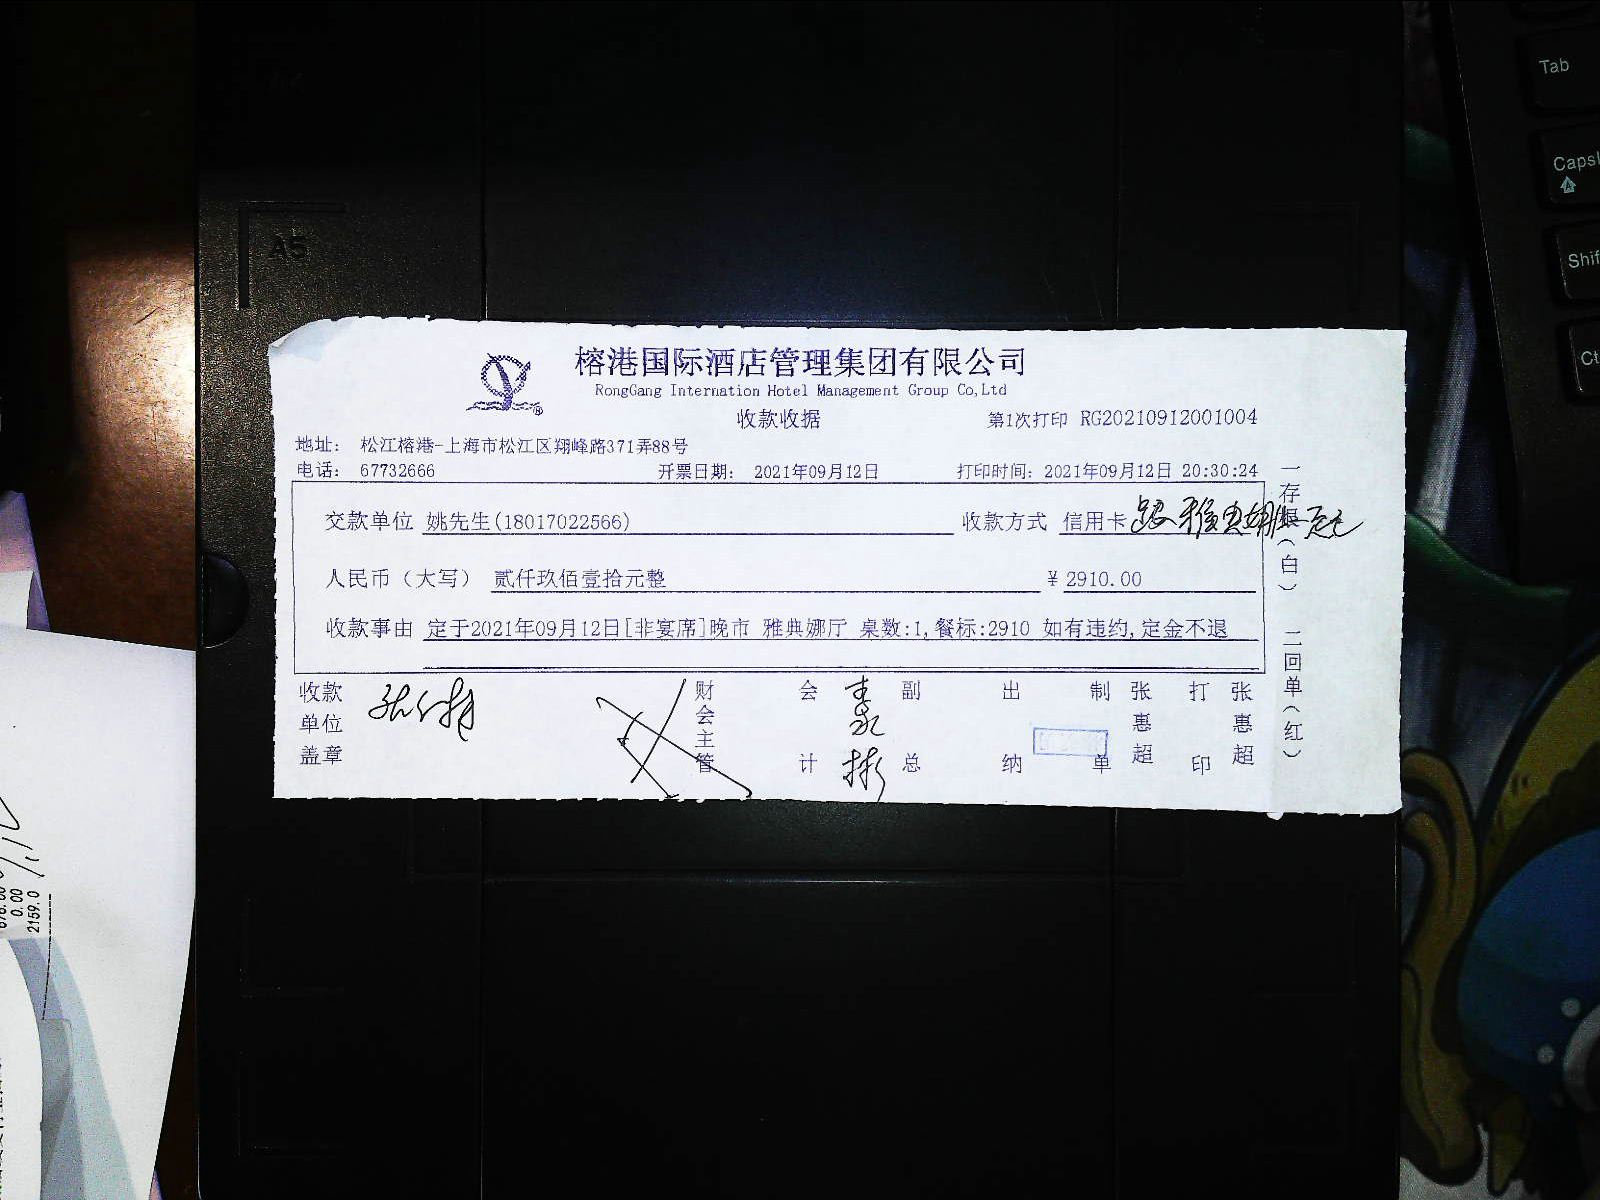 Tab
Caps
Shif
Ct
A5
榕港国际酒店管理集团有限公司
RongGang Internation Hotel Management Group Co,Ltd
收款收据
第1次打印 RG20210912001004
地址: 松江榕港-上海市松江区翔峰路371弄88号
电话: 67732666 开票日期: 2021年09月12日 打印时间: 2021年09月12日 20:30:24
交款单位 姚先生(18017022566) 收款方式 信用卡
人民币(大写) 贰仟玖佰壹拾元整 ¥ 2910.00
收款事由 定于2021年09月12日[非宴席]晚市 雅典娜厅 桌数:1,餐标:2910 如有违约,定金不退
收款单位盖章
财会主管
会计
副总
出纳
制单
张惠超
打印
张惠超
一存根(白) 二回单(红)
0.00
2159.0